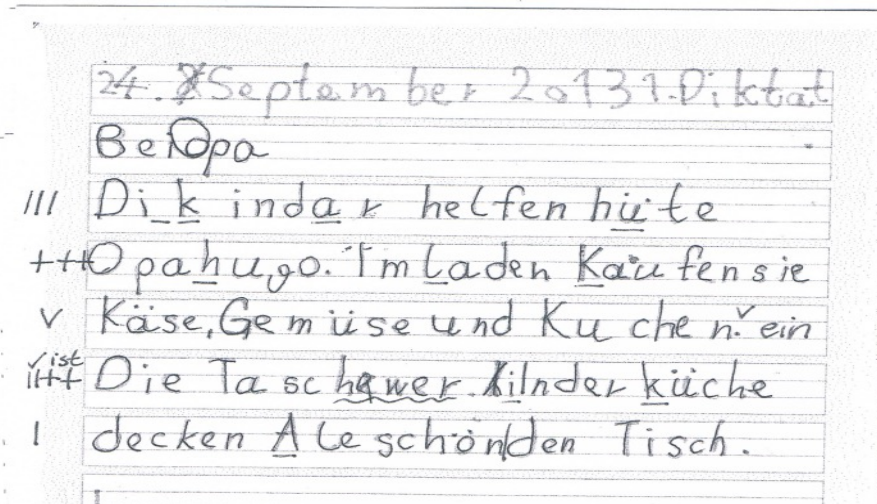 24. September 2013 1. Diktat
Bei Opa
III Di kindar helfen hüte
+++ Opa hugo. Im Laden Kaufen sie
v Käse, Gemüse und Kuchen. ein
v ist
Die Tasche wer. kilnder küche
I decken Ale schönden Tisch.